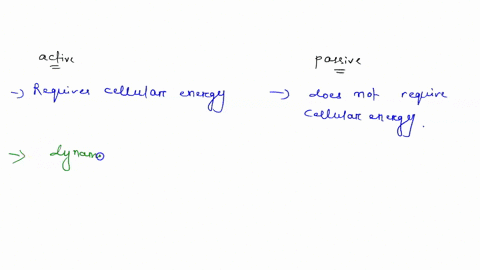 active
passive
-> Requires cellular energy
-> does not require
cellular energy.
-> dynamo